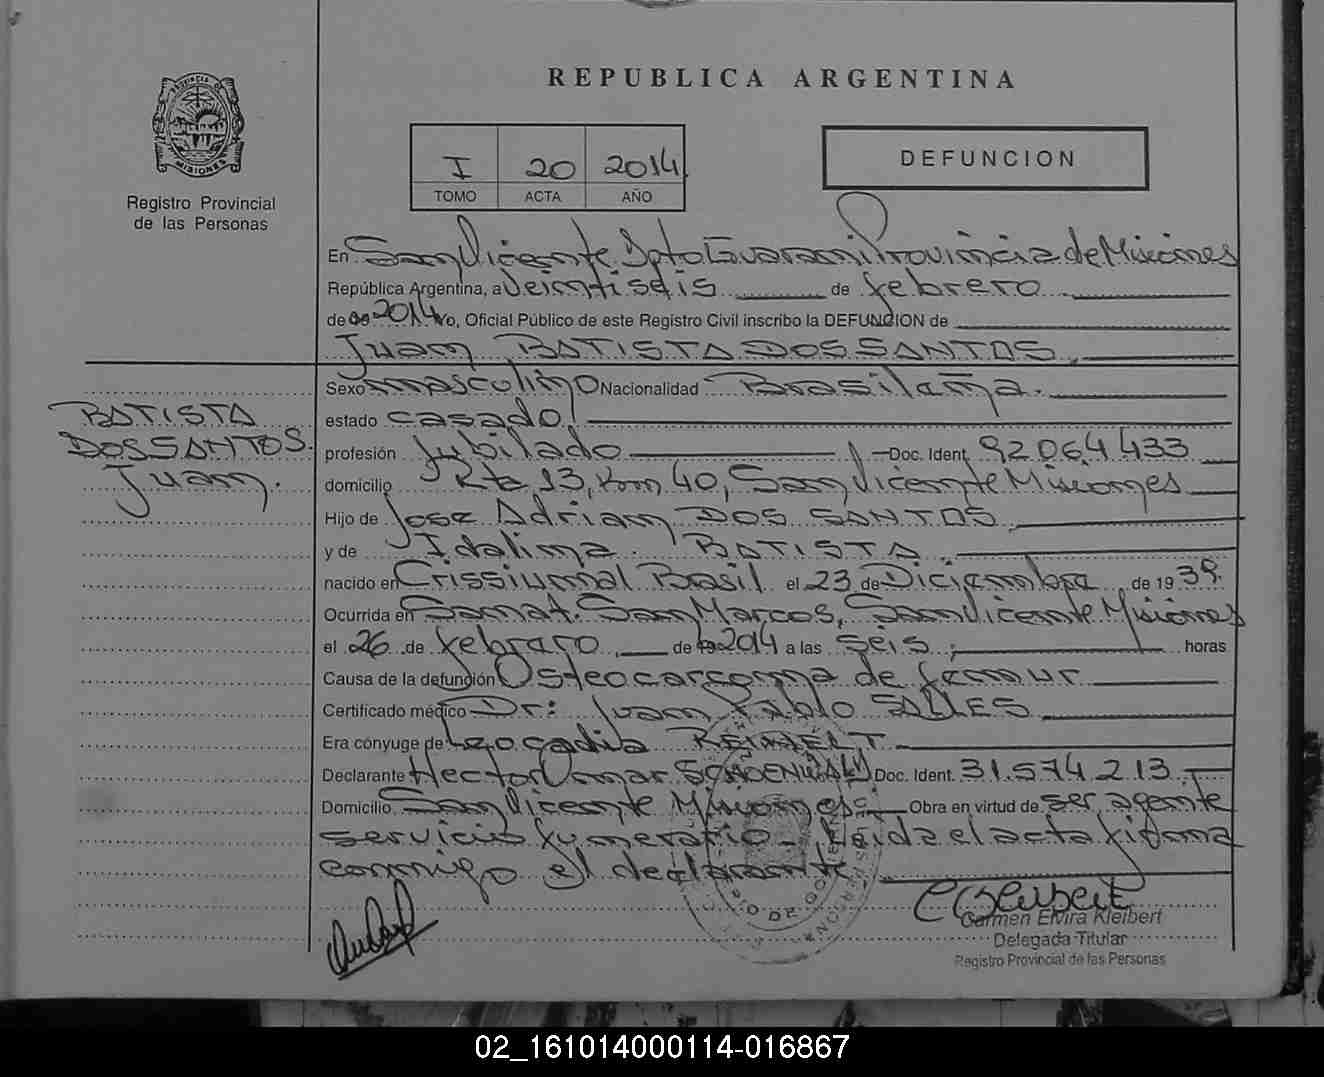 REPUBLICA ARGENTINA
PROVINCIA D
MISIONES
Registro Provincial
de las Personas
I 20 2014
TOMO ACTA AÑO
DEFUNCION
En San Vicente Dpto Guarani Provincia de Misiones
República Argentina, a Veintiseis de febrero
de 2014 Yo, Oficial Público de este Registro Civil inscribo la DEFUNCION de
Juan BATISTA DOS SANTOS
Sexo masculino Nacionalidad Brasileña.
BATISTA
DOS SANTOS.
Juan.
estado casado
profesión Jubilado Doc. Ident. 92064433
domicilio Rta 13, Km 40, San Vicente Misiones
Hijo de Jose Adrian DOS SANTOS
y de Idalina BATISTA
nacido en Crissiumal Brasil el 23 de Diciembre de 1939.
Ocurrida en Sanat. San Marcos, San Vicente Misiones
el 26 de febrero de 2014 a las seis horas
Causa de la defunción Osteocarcoma de femur
Certificado médico Dr: Juan Pablo SALLES
Era cónyuge de Leocadia
Declarante Hector Omar Doc. Ident. 31.574.213
Domicilio San Vicente Misiones Obra en virtud de ser agente
servicio funerario. Leida el acta firma
conmigo el declarante
Carmen Elvira Kleibert
Delegada Titular
Registro Provincial de las Personas
02_161014000114-016867